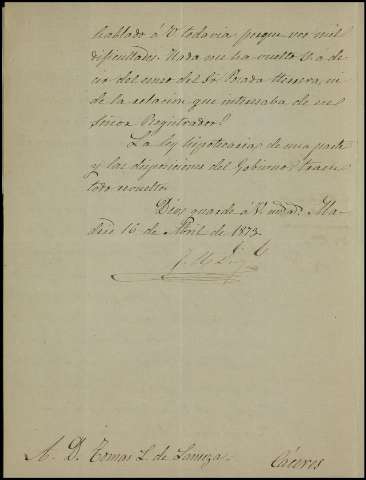 hablado á V todavia porque veo mil
dificultades. Nada me ha vuelto V. á de
cir del censo del Sr. Posada Herrera, ni
de la relacion que interesaba de ese
Registrador?
La ley hipotecaria de una parte
y las disposiciones del Gobierno traen
todo revuelto.
Dios guarde á V. Ma-
drid 16 de Abril de 1873
A. D. Tomas L. de Sanuza. Cáceres